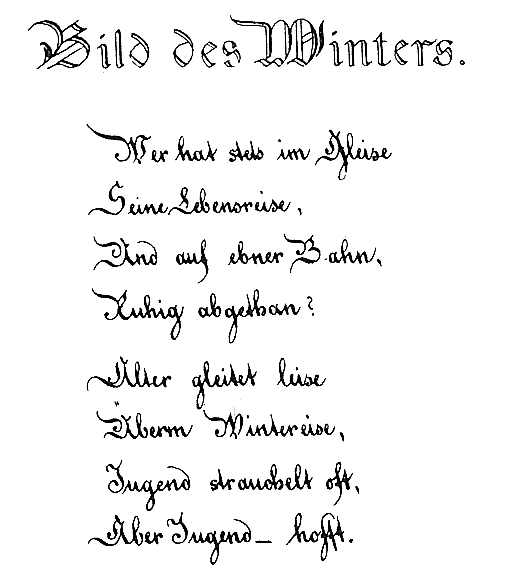 Bild des Winters.
Wer hat stets im Gleise
Seine Lebensreise,
Und auf ebner Bahn,
Ruhig abgethan?
Alter gleitet leise
Überm Wintereise,
Jugend strauchelt oft,
Aber Jugend – hofft.